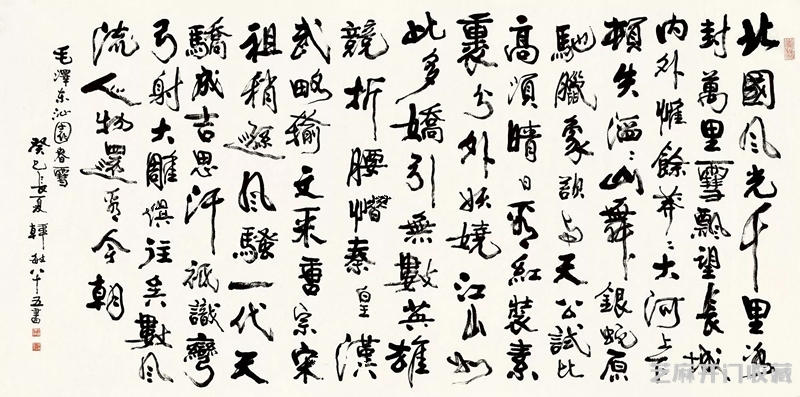 北國风光千里冰
封萬里雪飄望長城
内外惟餘莽々大河上下
頓失滔々山舞銀蛇原
馳臘象欲与天公試比
高須晴日看紅裝素
裹分外妖嬈江山如
此多嬌引無數英雄
競折腰惜秦皇漢
武略输文采唐宗宋
祖稍遜风騷一代天
驕成吉思汗祇識彎
弓射大雕俱往矣數风
流人物還看今朝
毛澤东沁園春雪
癸巳長夏 八十五書
芝麻开门收藏